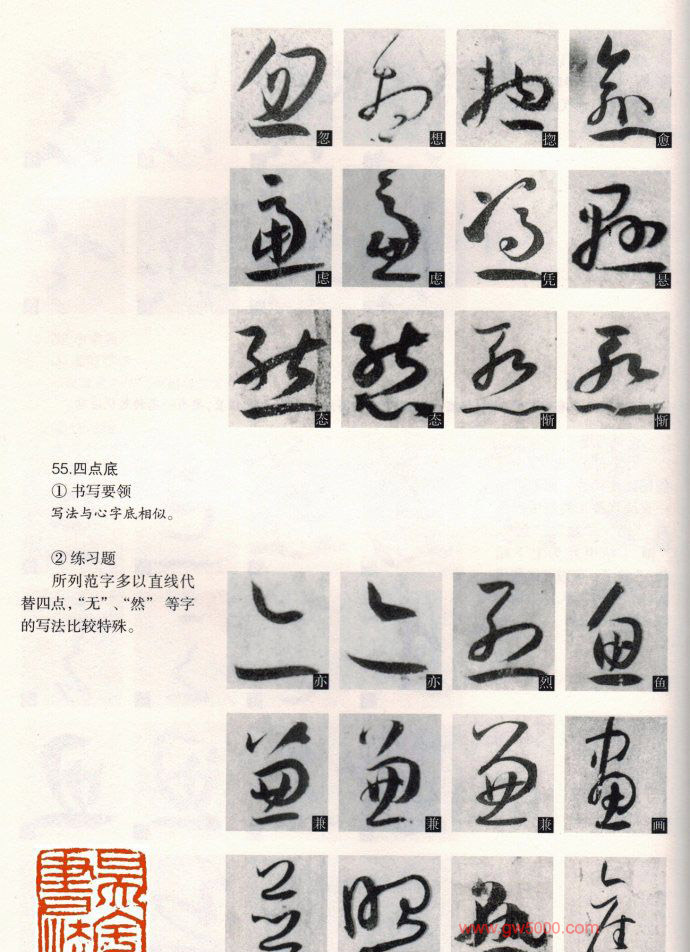 忽 想 揔 愈
虑 虑 凭 悬
态 态 惭 惭
55.四点底
① 书写要领
写法与心字底相似。
② 练习题
所列范字多以直线代
替四点，“无”、“然” 等字
的写法比较特殊。
亦 亦 烈 鱼
兼 兼 兼 画
www.gw5000.com